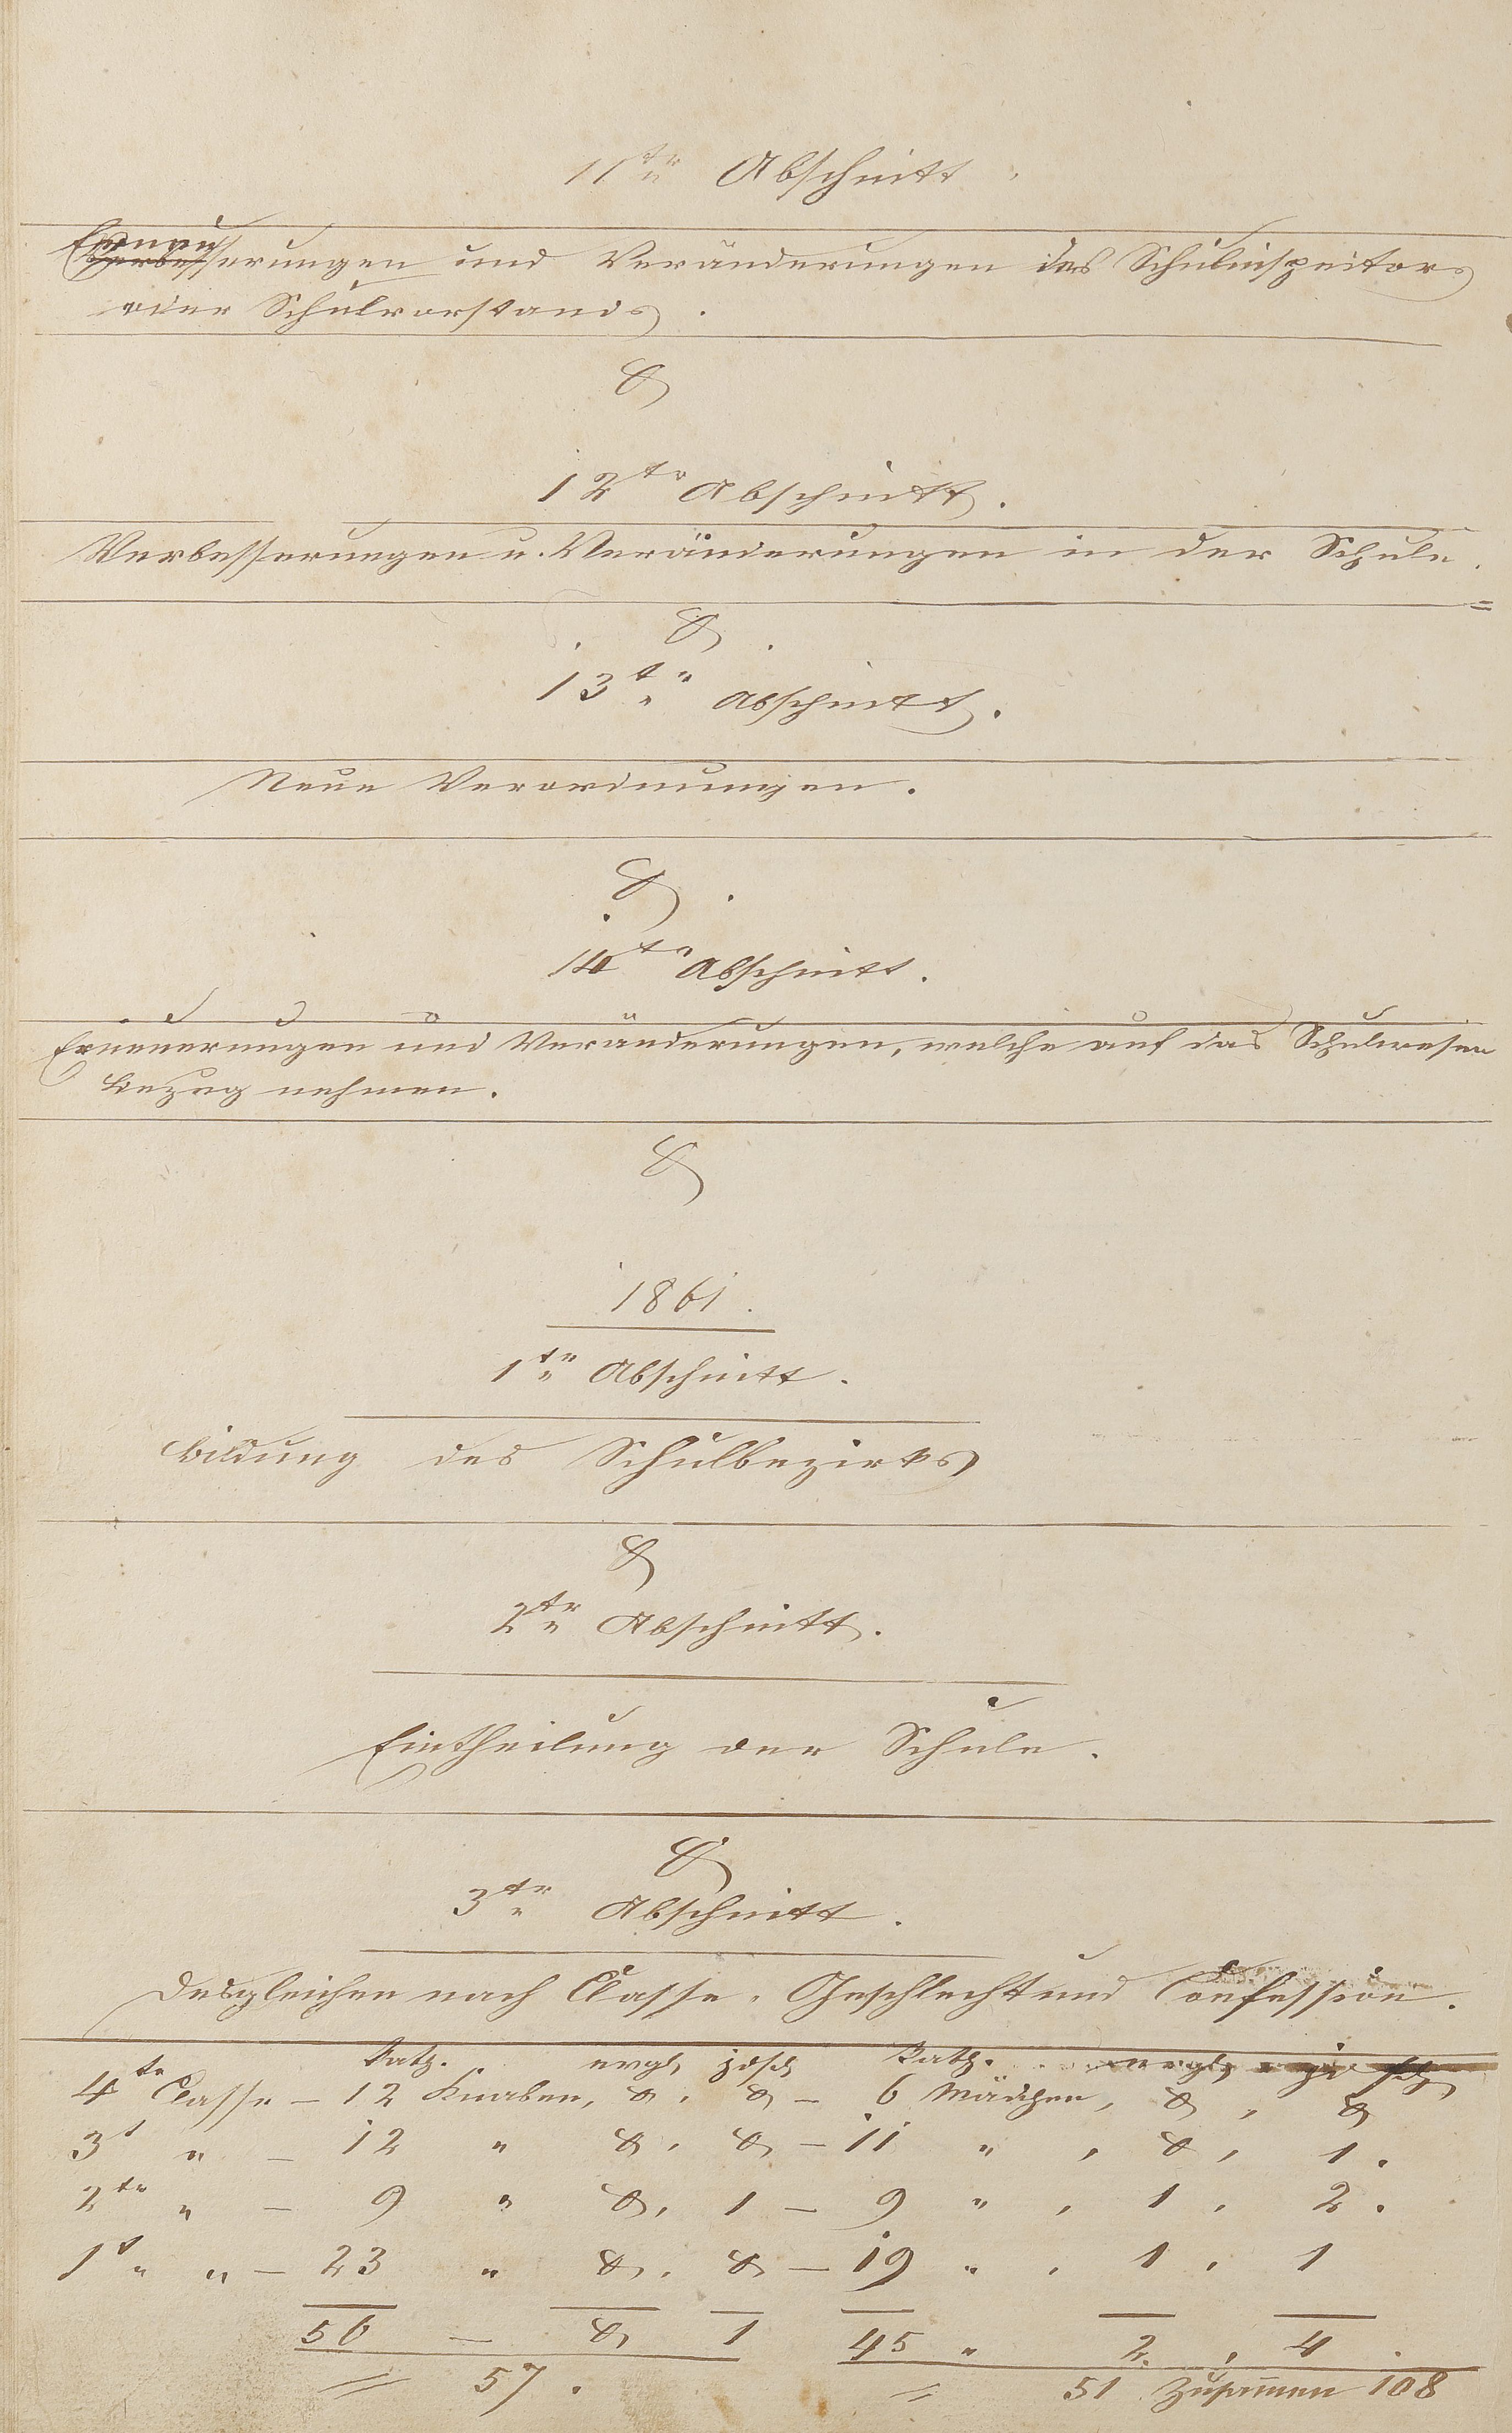 11te Abschnitt.
Erneuerungen und Veränderungen des Schulinspectors
oder Schulvorstands.
&
12te Abschnitt.
Verbesserungen u. Veränderungen in der Schule.
&.
13t Abschnitt.
Neue Verordnungen.
&.
14te Abschnitt.
Erneuerungen und Veränderungen, welche auf das Schulwesen
Bezug nehmen.
&
1861.
1te Abschnitt.
Bildung des Schulbezirks
&
2te Abschnitt.
Eintheilung der Schule.
&
3te Abschnitt.
Desgleichen nach Classe, Geschlecht und Confession.
Kath. evgl. jdsch Kath. evgl. jdsch
4te Classe – 12 Knaben, &, & – 6 Mädchen, &, &
3t " – 12 " &, & – 11 ", &, 1.
2te " – 9 " &, 1 – 9 ", 1, 2.
1t " – 23 " &, & – 19 ", 1, 1
56 – & 1 45 " 2, 4.
= 57. = 51 Zusammen 108